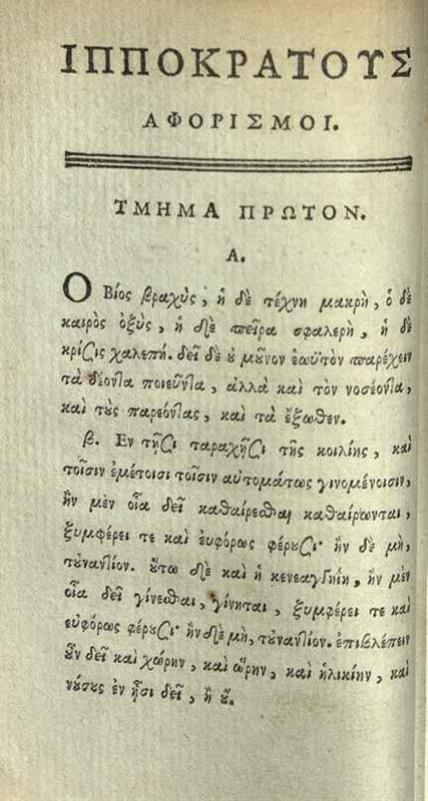 ΙΠΠΟΚΡΑΤΟΥΣ
ΑΦΟΡΙΣΜΟΙ.
ΤΜΗΜΑ ΠΡΩΤΟΝ.
Α.
Ο Βίος βραχὺς, ἡ δὲ τέχνη μακρὴ, ὁ δὲ
καιρὸς ὀξὺς, ἡ δὲ πεῖρα σφαλερὴ, ἡ δὲ
κρίσις χαλεπή. δεῖ δὲ ȣ μȣ͂νον ἑωϋτὸν παρέχειν
τὰ δέοντα ποιεῦντα, ἀλλὰ καὶ τὸν νοσέοντα,
καὶ τȣ̀ς παρεόντας, καὶ τὰ ἔξωθεν.
β. Εν τῇσι ταραχῇσι τῆς κοιλίης, καὶ
τοῖσιν ἐμέτοισι τοῖσιν αὐτομάτως γινομένοισιν,
ἢν μὲν οἷα δεῖ καθαίρεσθαι καθαίρωνται,
ξυμφέρει τε καὶ εὐφόρως φέρȣσι· ἢν δὲ μὴ,
τȣ̓ναντίον. ȣ̔́τω δὲ καὶ ἡ κενεαγγηίη, ἢν μὲν
οἷα δεῖ γίνεσθαι, γίνηται, ξυμφέρει τε καὶ
εὐφόρως φέρȣσι· ἢν δὲ μὴ, τȣ̓ναντίον. ἐπιβλέπειν
ȣ̓͂ν δεῖ καὶ χώρην, καὶ ὥρην, καὶ ἡλικίην, καὶ
νȣ́σȣς ἐν ᾗσι δεῖ, ἢ ȣ̓́.